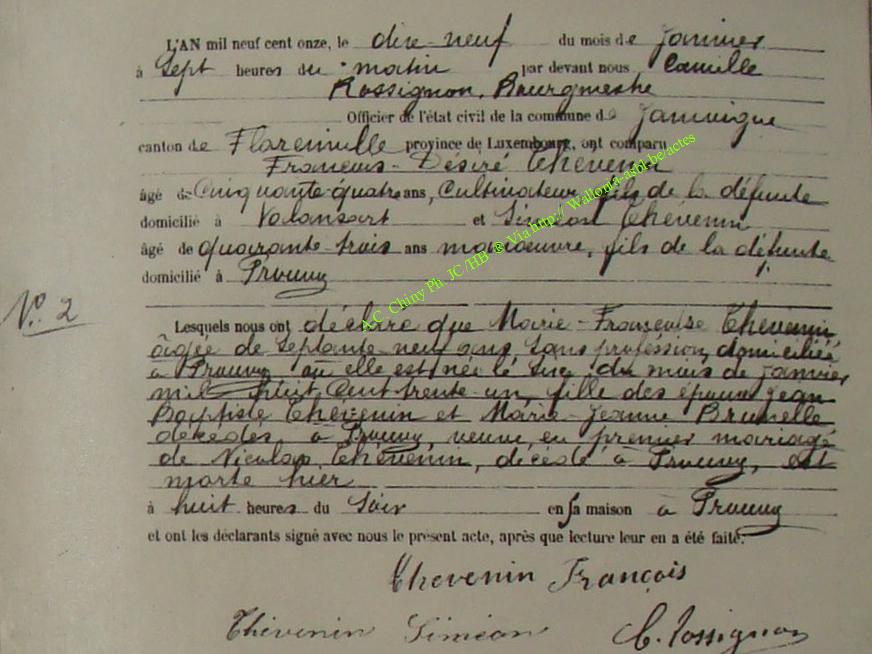 L'AN mil neuf cent onze, le dix-neuf du mois de Janvier
à Sept heures du matin par devant nous Camille
Rossignon, Bourgmestre
Officier de l'état civil de la commune de Jamoigne
canton de Florenville province de Luxembourg, ont comparu
François-Désiré Thévenin
âgé de Cinquante-quatre ans, Cultivateur, fils de la défunte
domicilié à Valansart et Siméon Thévenin
âgé de quarante-trois ans manoeuvre, fils de la défunte
domicilié à Prouvy
N°. 2
Lesquels nous ont déclaré que Marie-Françoise Thévenin
âgée de Septante neuf ans Sans profession, domiciliée
à Prouvy où elle est née le du mois de Janvier
mil huit Cent trente-un, fille des époux Jean
Baptiste Thévenin et Marie-Jeanne
décédés à Prouvy, veuve en premier mariage
de Nicolas Thévenin, décédé à Prouvy, est
morte hier
à huit heures du Soir en sa maison à Prouvy
et ont les déclarants signé avec nous le présent acte, après que lecture leur en a été faite.
Thevenin François
Thévenin Siméon C. Rossignon
A.C. Chiny Ph JC /HB ® Via http:// Wallonia-asbl-be/actes